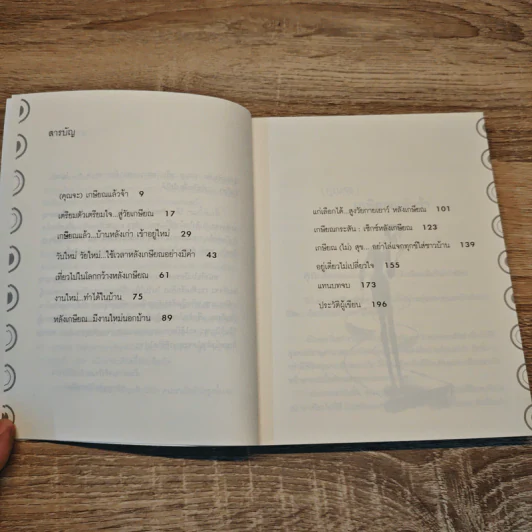 สารบัญ
(คุณจะ) เกษียณแล้วจ้า 9
เตรียมตัวเตรียมใจ...สู่วัยเกษียณ 17
เกษียณแล้ว...บ้านหลังเก่า เข้าอยู่ใหม่ 29
วันใหม่ วัยใหม่...ใช้เวลาหลังเกษียณอย่างมีค่า 43
เที่ยวไปในโลกกว้างหลังเกษียณ 61
งานใหม่...ทำได้ในบ้าน 75
หลังเกษียณ...มีงานใหม่นอกบ้าน 89
แก่เลือกได้...สูงวัยกายเยาว์ หลังเกษียณ 101
เกษียณกระสัน : เซ็กซ์หลังเกษียณ 123
เกษียณ (ไม่) สุข... อย่าไล่แจกทุกข์ใส่ชาวบ้าน 139
อยู่เดี่ยวไม่เปลี่ยวใจ 155
แทนบทจบ 173
ประวัติผู้เขียน 196